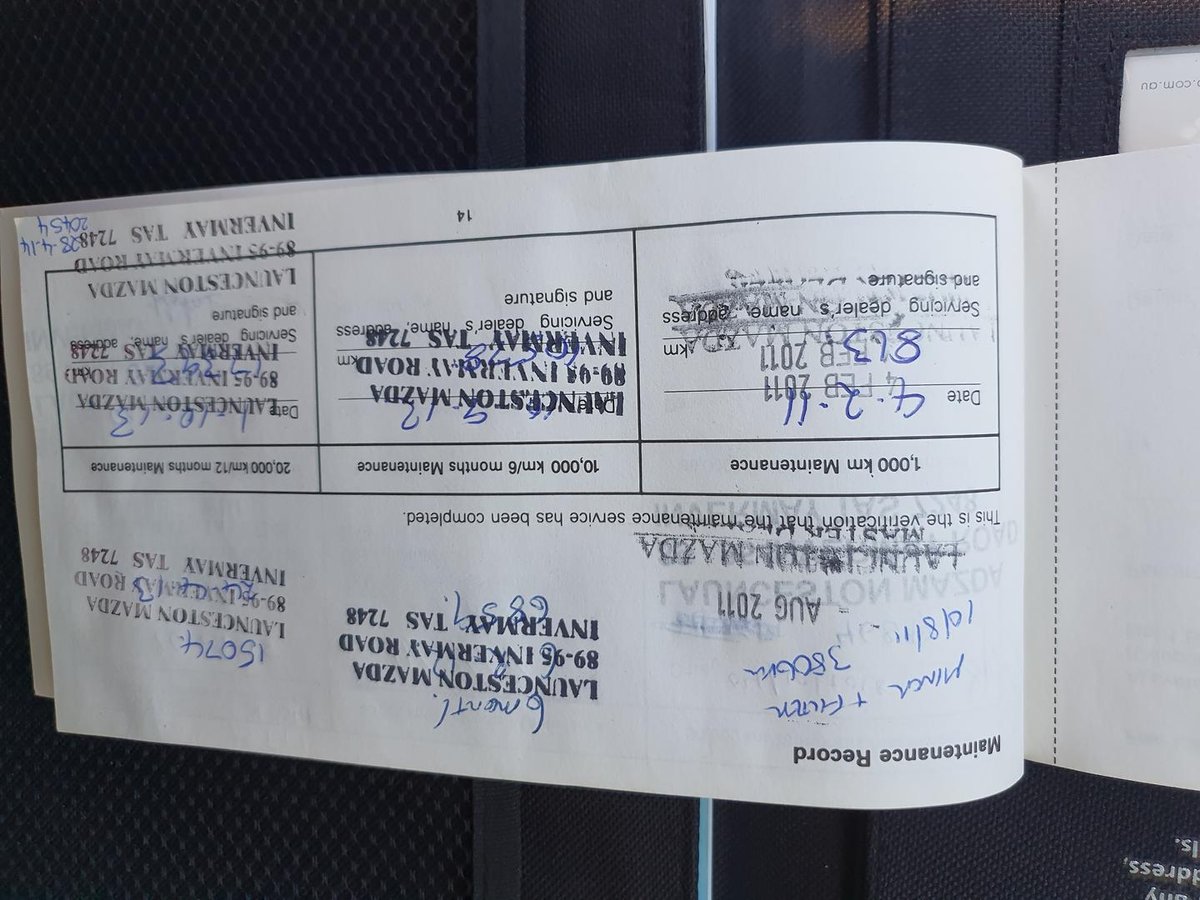 Maintenance Record
MINOR + FILTER
10/8/11 - 3806km
AUG 2011
LAUNCESTON MAZDA
6 month
LAUNCESTON MAZDA
89-95 INVERMAY ROAD
INVERMAY TAS 7248
15074
LAUNCESTON MAZDA
89-95 INVERMAY ROAD
INVERMAY TAS 7248
LAUNCESTON MAZDA
INVERMAY TAS 7248
This is the verification that the maintenance service has been completed.
1,000 km Maintenance
Date 4-2-11
4 FEB 2011
813 km
FEB 2011
Servicing dealer's name, address
and signature
10,000 km/6 months Maintenance
Date
LAUNCESTON MAZDA
89-95 INVERMAY ROAD
km
INVERMAY TAS 7248
Servicing dealer's name, address
and signature
20,000 km/12 months Maintenance
Date 1-10-13
LAUNCESTON MAZDA
89-95 INVERMAY ROAD
km
INVERMAY TAS 7248
Servicing dealer's name, address
and signature
LAUNCESTON MAZDA
89-95 INVERMAY ROAD
INVERMAY TAS 7248
28-4-14
20454
14
any
ddress,
ls.
o.com.au